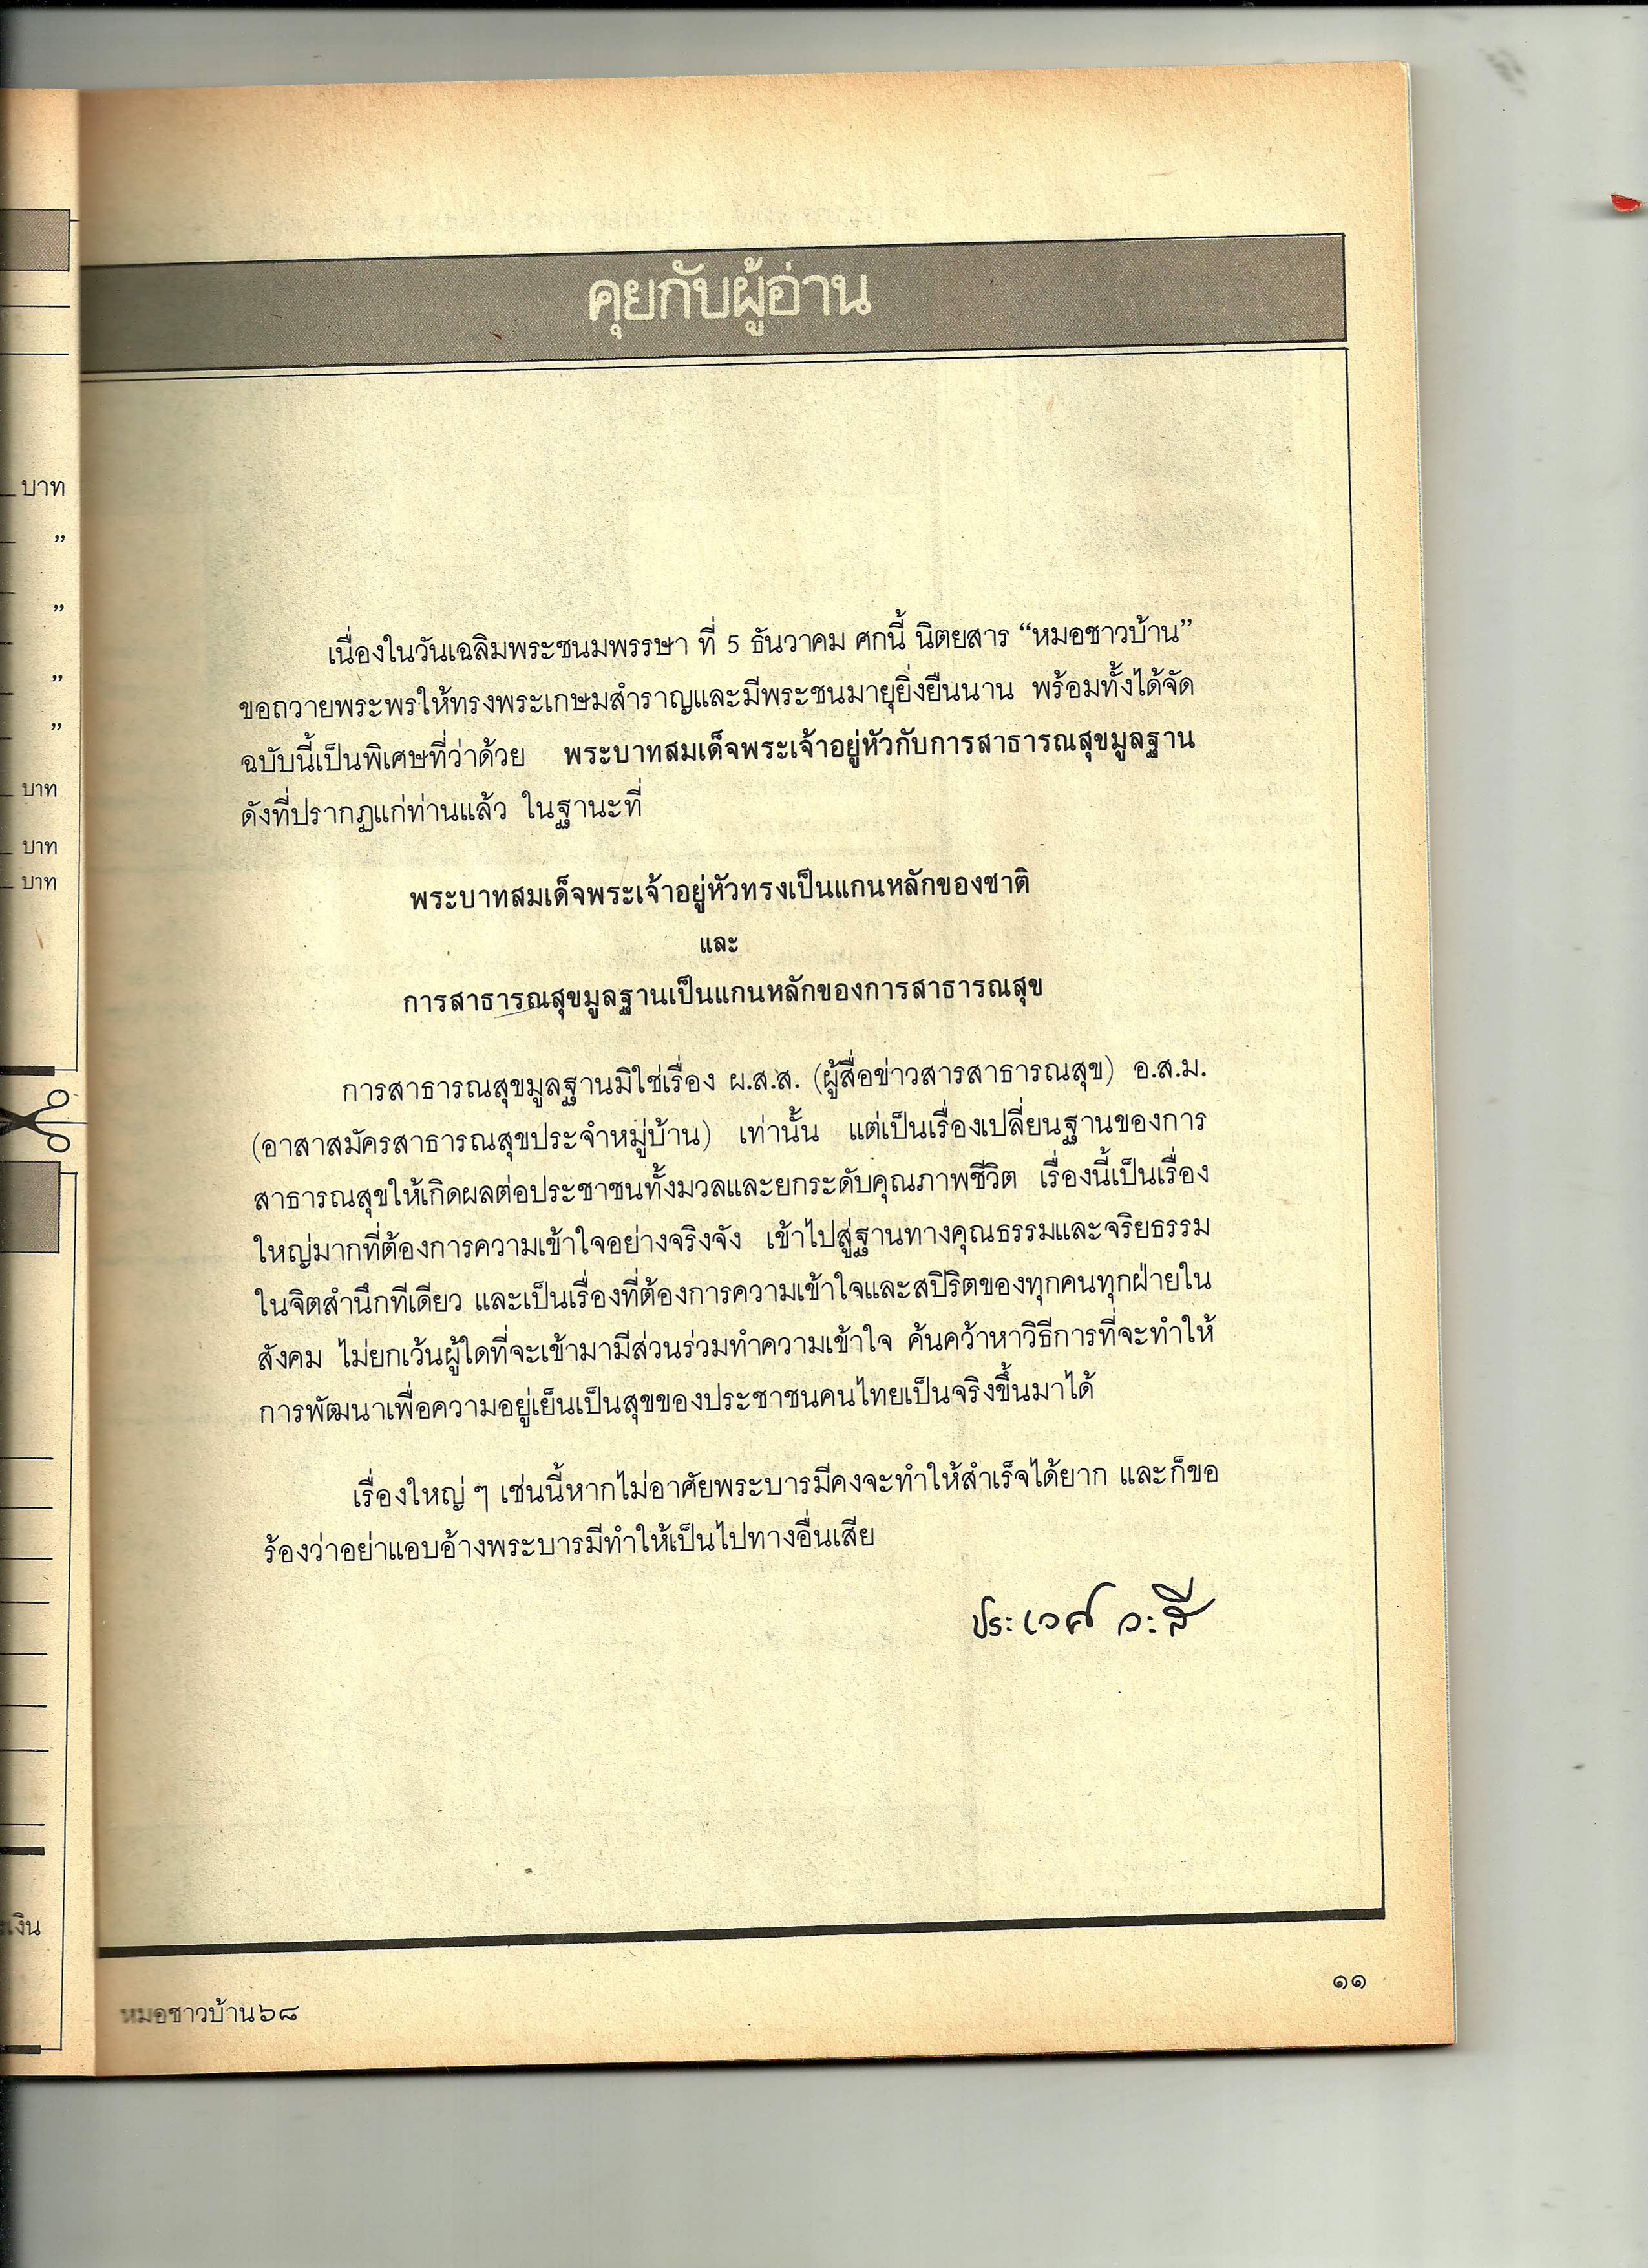 คุยกับผู้อ่าน
เนื่องในวันเฉลิมพระชนมพรรษา ที่ 5 ธันวาคม ศกนี้ นิตยสาร “หมอชาวบ้าน”
ขอถวายพระพรให้ทรงพระเกษมสำราญและมีพระชนมายุยิ่งยืนนาน พร้อมทั้งได้จัด
ฉบับนี้เป็นพิเศษที่ว่าด้วย พระบาทสมเด็จพระเจ้าอยู่หัวกับการสาธารณสุขมูลฐาน
ดังที่ปรากฏแก่ท่านแล้ว ในฐานะที่
พระบาทสมเด็จพระเจ้าอยู่หัวทรงเป็นแกนหลักของชาติ
และ
การสาธารณสุขมูลฐานเป็นแกนหลักของการสาธารณสุข
การสาธารณสุขมูลฐานมิใช่เรื่อง ผ.ส.ส. (ผู้สื่อข่าวสารสาธารณสุข) อ.ส.ม.
(อาสาสมัครสาธารณสุขประจำหมู่บ้าน) เท่านั้น แต่เป็นเรื่องเปลี่ยนฐานของการ
สาธารณสุขให้เกิดผลต่อประชาชนทั้งมวลและยกระดับคุณภาพชีวิต เรื่องนี้เป็นเรื่อง
ใหญ่มากที่ต้องการความเข้าใจอย่างจริงจัง เข้าไปสู่ฐานทางคุณธรรมและจริยธรรม
ในจิตสำนึกทีเดียว และเป็นเรื่องที่ต้องการความเข้าใจและสปิริตของทุกคนทุกฝ่ายใน
สังคม ไม่ยกเว้นผู้ใดที่จะเข้ามามีส่วนร่วมทำความเข้าใจ ค้นคว้าหาวิธีการที่จะทำให้
การพัฒนาเพื่อความอยู่เย็นเป็นสุขของประชาชนคนไทยเป็นจริงขึ้นมาได้
เรื่องใหญ่ ๆ เช่นนี้หากไม่อาศัยพระบารมีคงจะทำให้สำเร็จได้ยาก และก็ขอ
ร้องว่าอย่าแอบอ้างพระบารมีทำให้เป็นไปทางอื่นเสีย
ประเวศ วะสี
๑๑
หมอชาวบ้าน๖๘
บาท
”
”
”
”
บาท
บาท
บาท